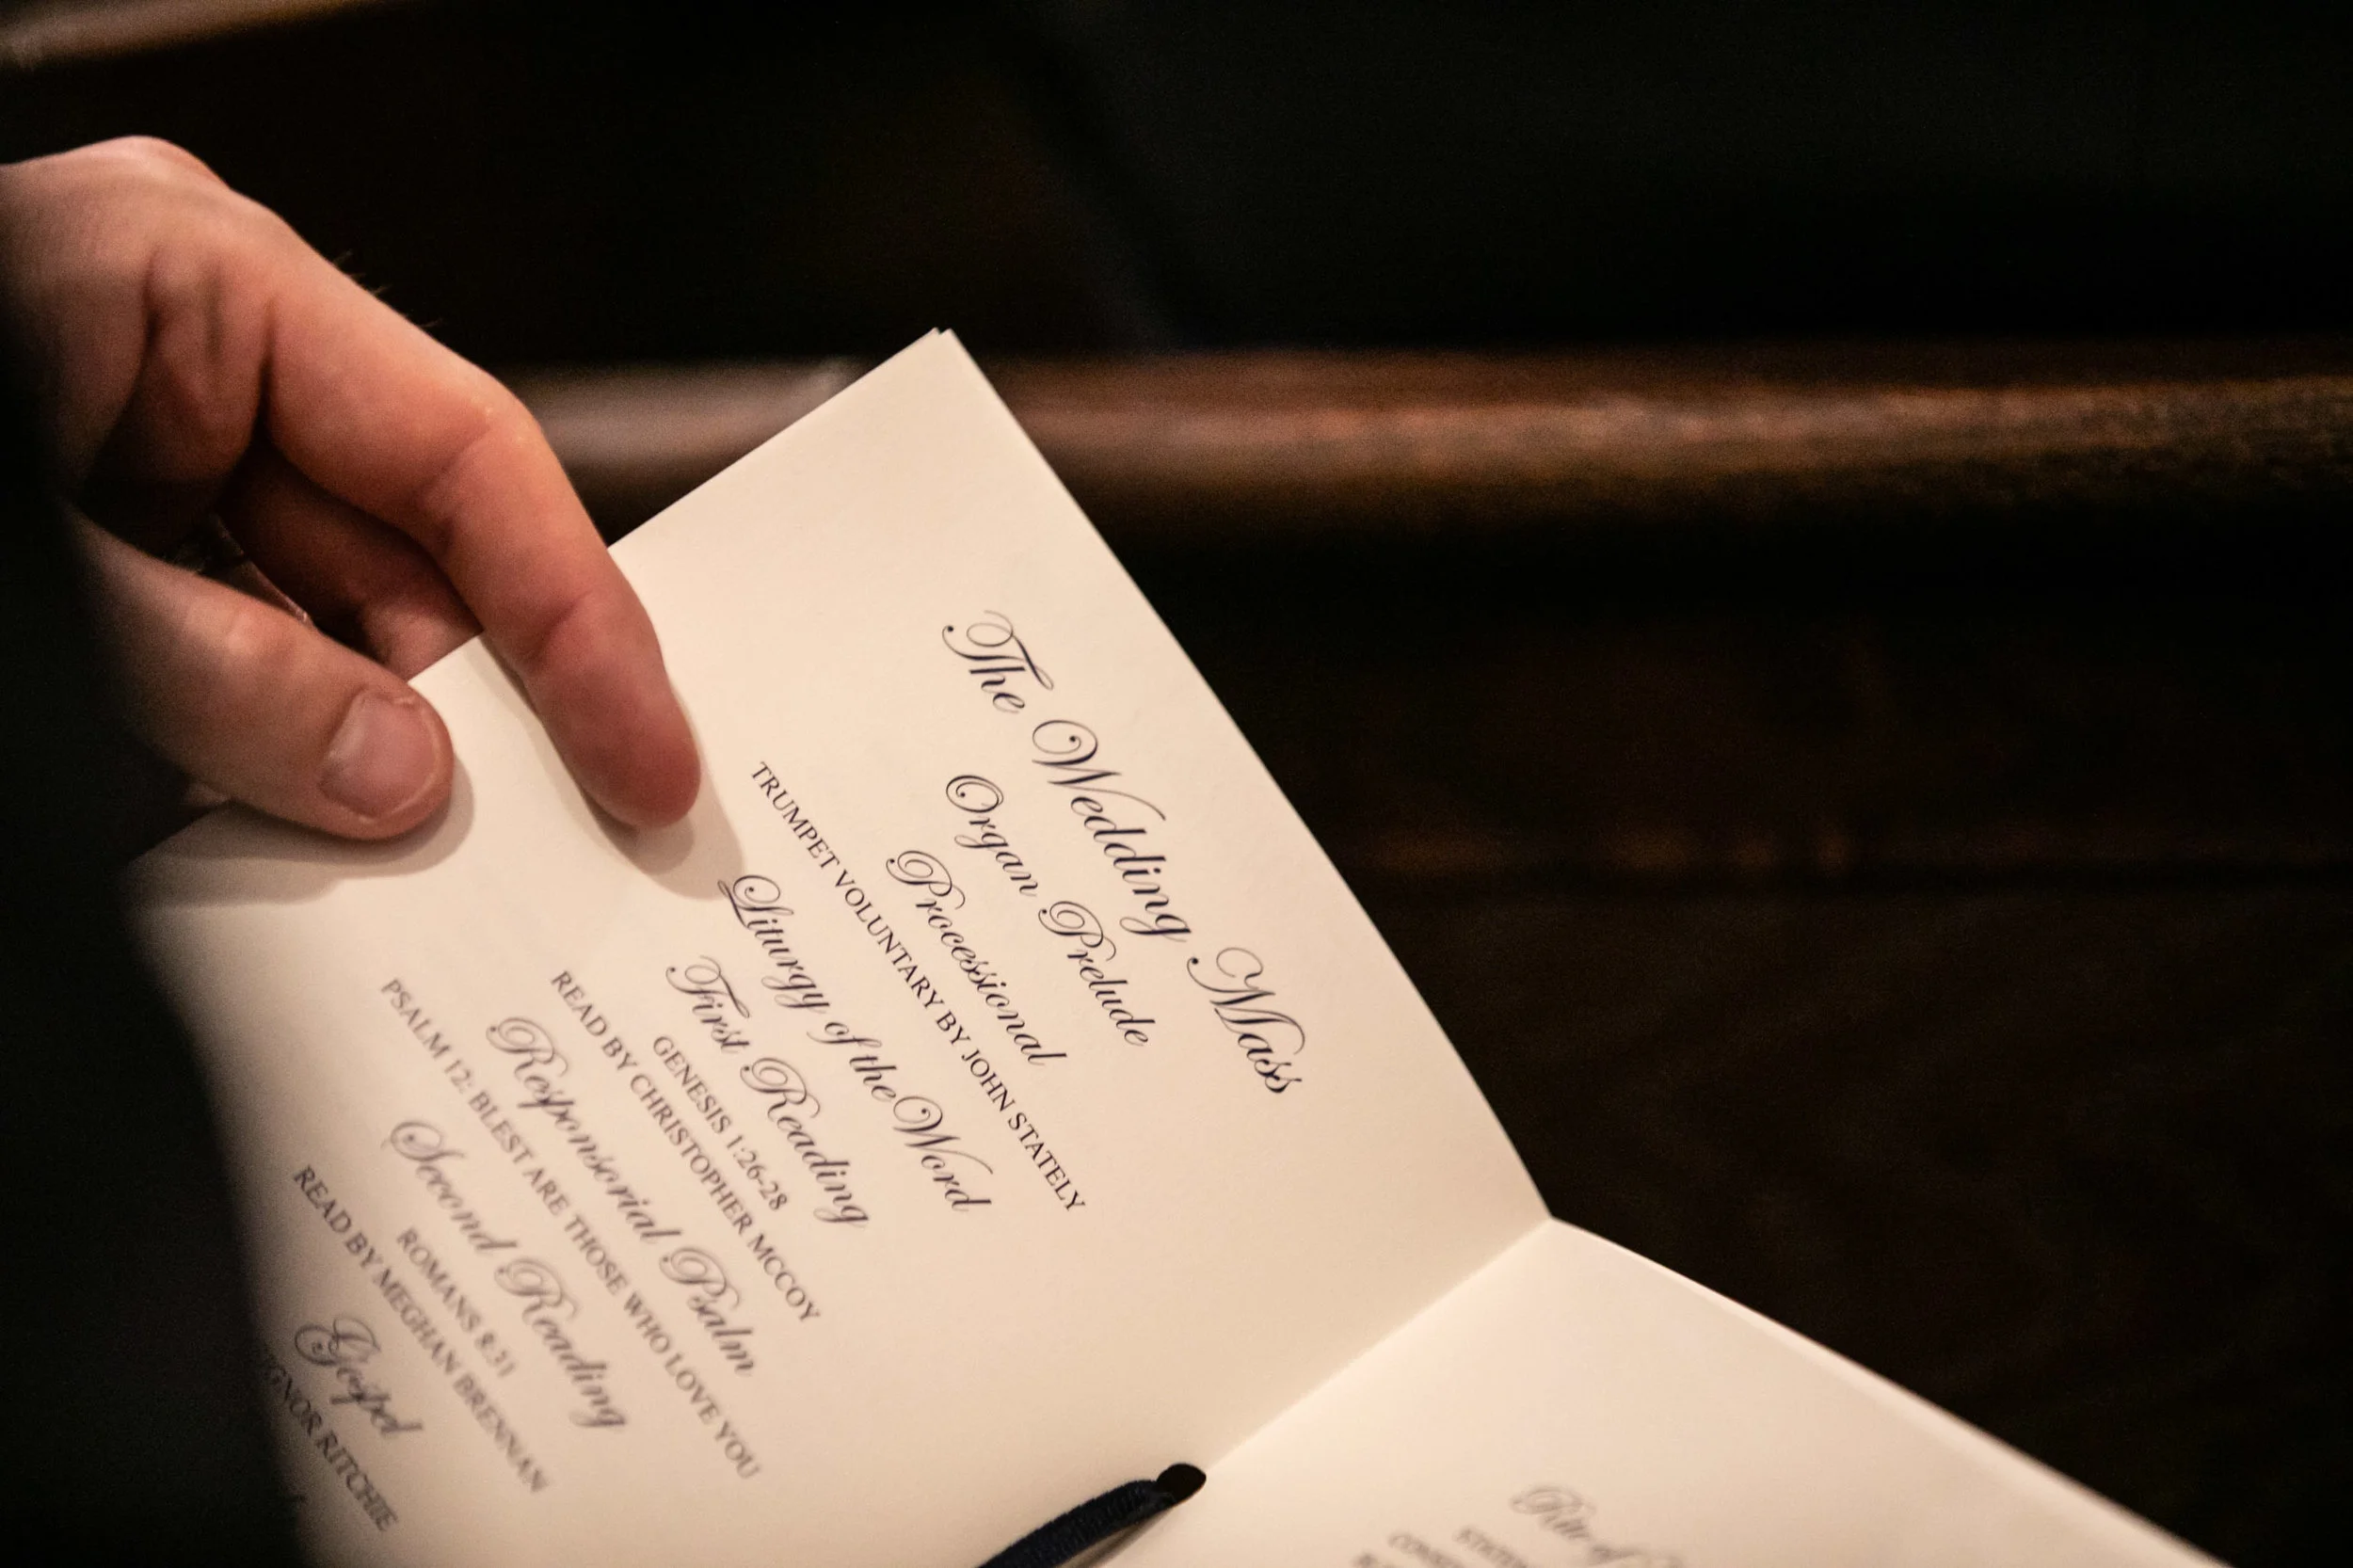 The Wedding Mass
Organ Prelude
Processional
TRUMPET VOLUNTARY BY JOHN STATELY
Liturgy of the Word
First Reading
GENESIS 1:26-28
READ BY CHRISTOPHER MCCOY
Responsorial Psalm
PSALM 12: BLEST ARE THOSE WHO LOVE YOU
Second Reading
ROMANS 8:31
READ BY MEGHAN BRENNAN
Gospel
RITCHIE
Rite of